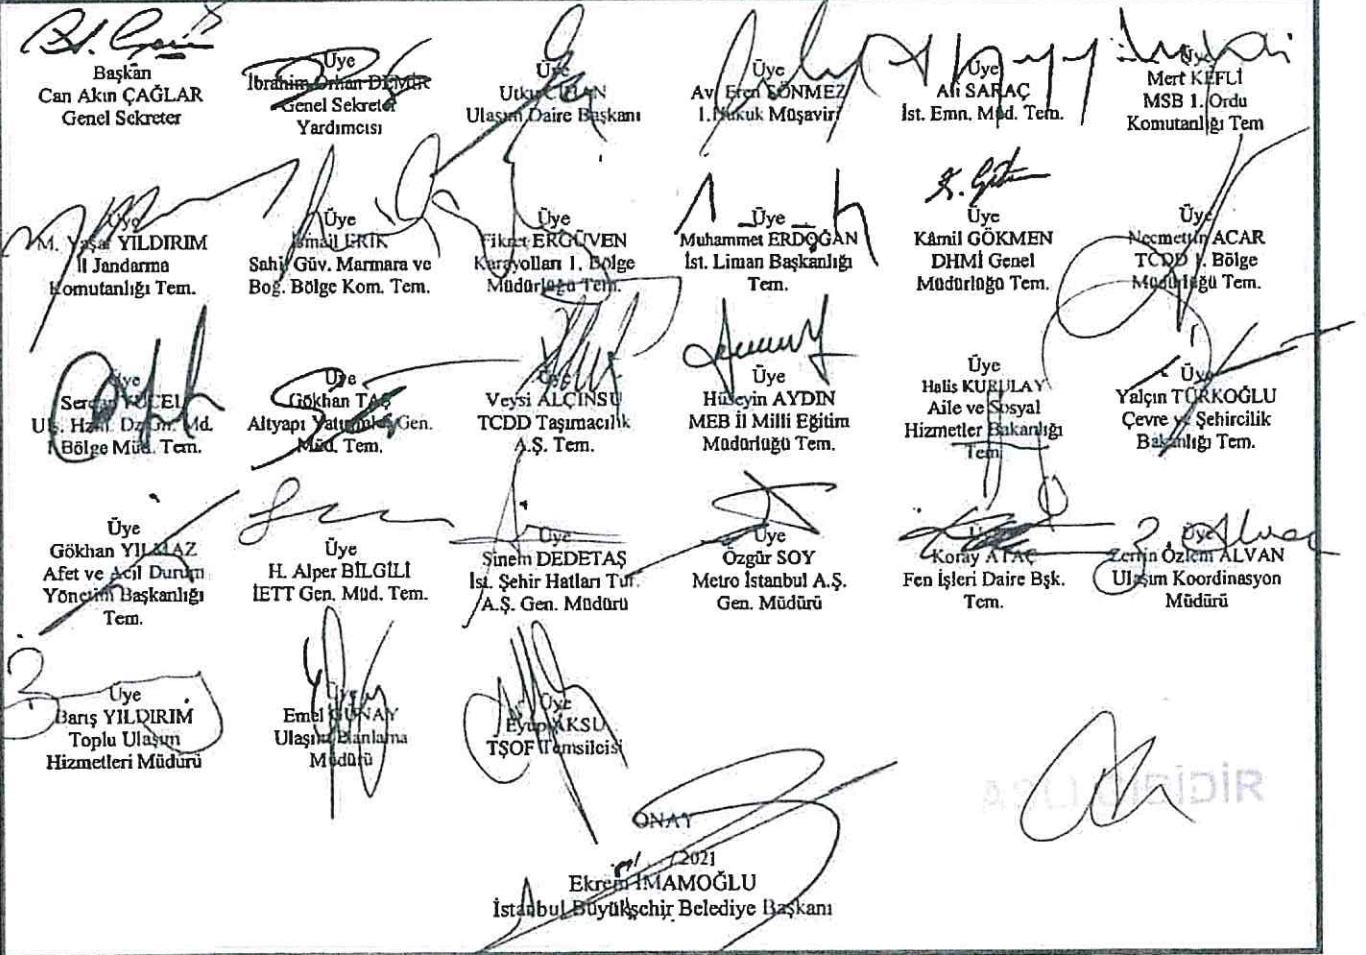 Başkan
Can Akın ÇAĞLAR
Genel Sekreter
Üye
İbrahim Orhan DEMİR
Genel Sekreter
Yardımcısı
Üye
Utku CİHAN
Ulaşım Daire Başkanı
Üye
Av. Eren SÖNMEZ
1.Hukuk Müşaviri
Üye
Ali SARAÇ
İst. Emn. Müd. Tem.
Üye
Mert KEFLİ
MSB 1. Ordu
Komutanlığı Tem
Üye
M. Yaşar YILDIRIM
İl Jandarma
Komutanlığı Tem.
Üye
İsmail ERİK
Sahil Güv. Marmara ve
Boğ. Bölge Kom. Tem.
Üye
Fikret ERGÜVEN
Karayolları 1. Bölge
Müdürlüğü Tem.
Üye
Muhammet ERDOĞAN
İst. Liman Başkanlığı
Tem.
K. Gökmen
Üye
Kâmil GÖKMEN
DHMİ Genel
Müdürlüğü Tem.
Üye
Necmettin ACAR
TCDD 1. Bölge
Müdürlüğü Tem.
Üye
Serdar YÜCEL
Bölge Müd. Tem.
Üye
Gökhan TAŞ
Altyapı Yatırımları Gen.
Müd. Tem.
Üye
Veysi ALÇINSU
TCDD Taşımacılık
A.Ş. Tem.
Üye
Hüseyin AYDIN
MEB İl Milli Eğitim
Müdürlüğü Tem.
Üye
Halis KURULAY
Aile ve Sosyal
Hizmetler Bakanlığı
Tem
Üye
Yalçın TÜRKOĞLU
Çevre ve Şehircilik
Bakanlığı Tem.
Üye
Gökhan YILMAZ
Afet ve Acil Durum
Yönetim Başkanlığı
Tem.
Üye
H. Alper BİLGİLİ
İETT Gen. Müd. Tem.
Üye
Sinem DEDETAŞ
İst. Şehir Hatları Tur.
A.Ş. Gen. Müdürü
Üye
Özgür SOY
Metro İstanbul A.Ş.
Gen. Müdürü
Üye
Koray ATAÇ
Fen İşleri Daire Bşk.
Tem.
Üye
Zerrin Özlem ALVAN
Ulaşım Koordinasyon
Müdürü
Üye
Barış YILDIRIM
Toplu Ulaşım
Hizmetleri Müdürü
Üye
Emel GÜNAY
Ulaşım Planlama
Müdürü
Üye
Eyüp AKSU
TŞOF Temsilcisi
ONAY
/2021
Ekrem İMAMOĞLU
İstanbul Büyükşehir Belediye Başkanı